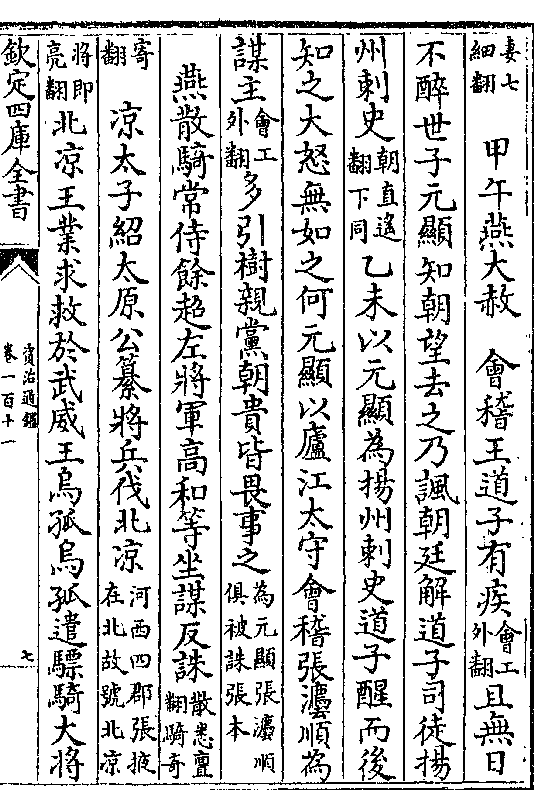 妻七細翻　甲午燕大赦　會稽王道子有疾會工外翻且無日
不醉世子元顯知朝望去之乃諷朝廷解道子司徒揚
州刺史朝直遙翻下同乙未以元顯為揚州刺史道子醒而後
知之大怒無如之何元顯以廬江太守會稽張灋順為
謀主會工外翻多引樹親黨朝貴皆畏事之為元顯張灋順俱被誅張本
燕散騎常侍餘超左將軍高和等坐謀反誅散悉亶翻騎奇
寄翻　涼太子紹太原公纂將兵伐北涼河西四郡張掖在北故號北涼
將即亮翻北涼王業求救於武威王烏孤烏孤遣驃騎大將
欽定四庫全書
資治通鑑
卷一百十一
七